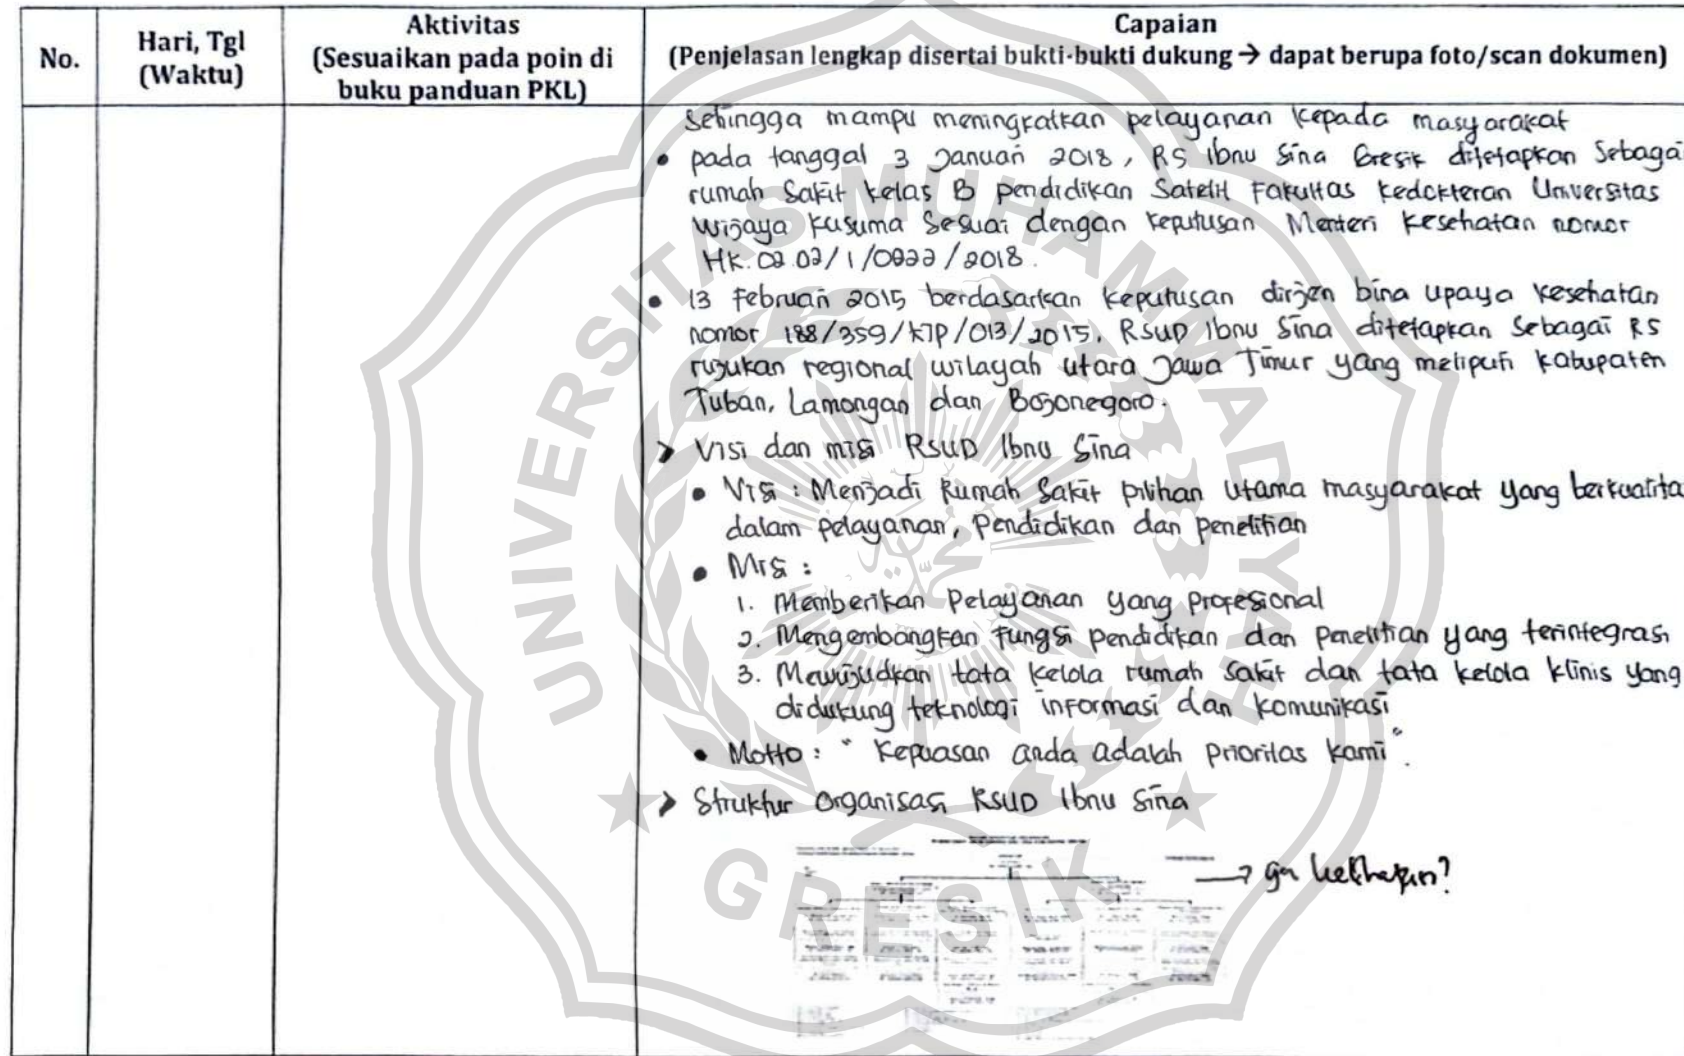 No.
Hari, Tgl
(Waktu)
Aktivitas
(Sesuaikan pada poin di
buku panduan PKL)
Capaian
(Penjelasan lengkap disertai bukti-bukti dukung → dapat berupa foto/scan dokumen)
Sehingga mampu meningkatkan pelayanan kepada masyarakat
• pada tanggal 3 Januari 2018, RS Ibnu Sina Gresik ditetapkan Sebagai
rumah Sakit kelas B pendidikan Satelit Fakultas kedokteran Universitas
Wijaya Kusuma Sesuai dengan keputusan Menteri Kesehatan nomor
HK.02.02/1/0022/2018.
• 13 Februari 2015 berdasarkan keputusan dirjen bina upaya kesehatan
nomor 188/359/KTP/013/2015. RSUD Ibnu Sina ditetapkan Sebagai RS
rujukan regional wilayah utara Jawa Timur yang meliputi kabupaten
Tuban, Lamongan dan Bojonegoro.
> Visi dan misi RSUD Ibnu Sina
• Visi : Menjadi Rumah Sakit pilihan Utama masyarakat yang berkualita
dalam pelayanan, Pendidikan dan penelitian
• Misi :
1. Memberikan Pelayanan yang profesional
2. Mengembangkan Fungsi pendidikan dan penelitian yang terintegrasi
3. Mewujudkan tata kelola rumah sakit dan tata kelola klinis yang
didukung teknologi informasi dan komunikasi
• Motto : " Kepuasan anda adalah prioritas kami ".
> Struktur Organisasi RSUD Ibnu Sina
→ ga kelihatan?
UNIVERSITAS MUHAMMADIYAH
GRESIK